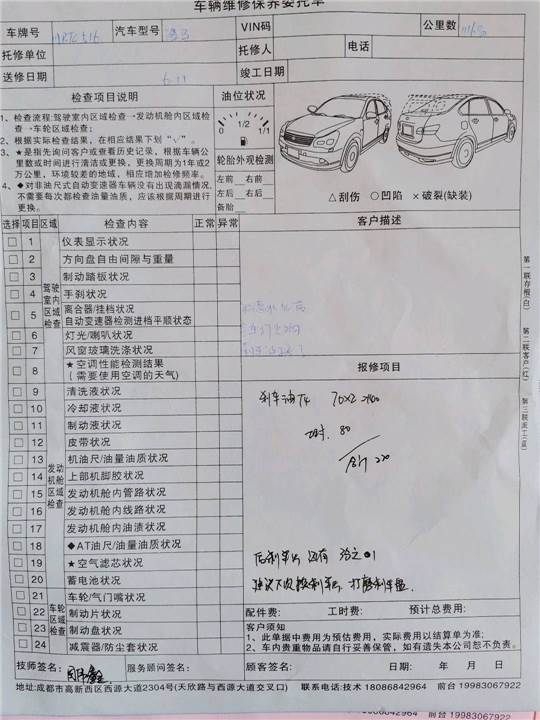 车辆维修保养委托单
车牌号 汽车型号 VIN码 公里数
托修单位 托修人 电话
送修日期 6.11 竣工日期
检查项目说明 油位状况
1、检查流程:驾驶室内区域检查→发动机舱内区域检查→车轮区域检查;
2、根据实际检查结果,在相应结果下划"√"。
3、★是指先询问客户或查看历史记录,根据车辆公里数或时间进行清洁或更换,更换周期为1年或2万公里,环境较差的地域,相应增加检修频率。
4、◆对非油尺式自动变速器车辆没有出现滴漏情况,不需要每次都检查油量油质,应该根据周期进行更换。
0 1/2 1/1
轮胎外观检测
左前 右前
左后 右后
备胎
△刮伤 ○凹陷 ×破裂(缺装)
选择 项目 区域 检查内容 正常 异常 客户描述
驾驶室内区域检查
1 仪表显示状况
2 方向盘自由间隙与重量
3 制动踏板状况
4 手刹状况
5 离合器/挂档状况
自动变速器检测进档平顺状态
6 灯光/喇叭状况
7 风窗玻璃洗涤状况
8 ★空调性能检测结果
(需要使用空调的天气)
报修项目
发动机舱区域检查
9 清洗液状况
10 冷却液状况
11 制动液状况
12 皮带状况
13 机油尺/油量油质状况
14 上部机脚胶状况
15 发动机舱内管路状况
16 发动机舱内线路状况
17 发动机舱内油渍状况
18 ◆AT油尺/油量油质状况
19 ★空气滤芯状况
20 蓄电池状况
车轮区域检查
21 车轮/气门嘴状况
22 制动片状况
23 制动盘状况
24 减震器/防尘套状况
刹车油 70x2
工时. 80
合计 220
后刹车片 还有
建议下次换刹车片, 打磨刹车盘.
配件费: 工时费: 预计总费用:
客户须知
1、此单据中费用为预估费用,实际费用以结算单为准;
2、车内贵重物品请自行妥善保管,如有遗失本公司恕不负责。
技师签名: 服务顾问签名: 顾客签名: 日期: 年 月 日
地址:成都市高新西区西源大道2304号(天欣路与西源大道交叉口) 联系电话:技术 18086842964 前台 19983067922
第一联存根(白)
第二联客户(红)
第三联派工(蓝)
18086842964 前台 19983067922